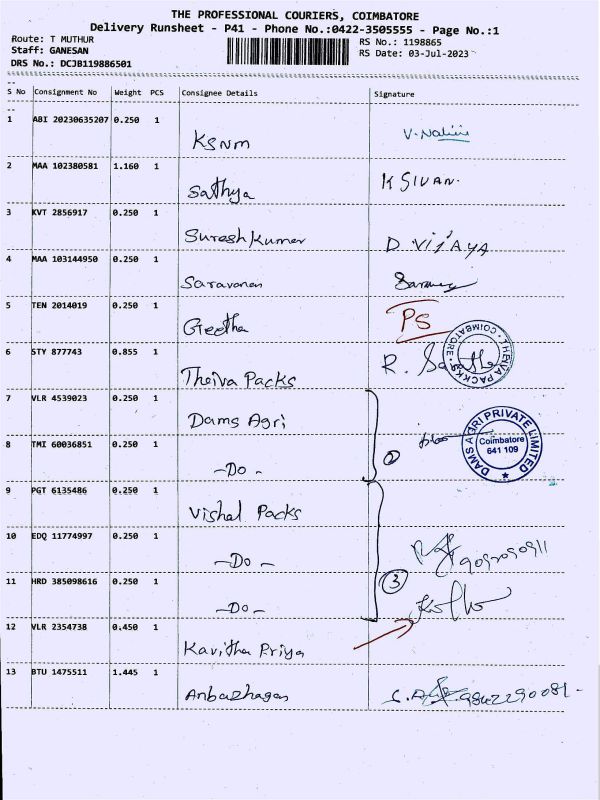 THE PROFESSIONAL COURIERS, COIMBATORE
Delivery Runsheet - P41 - Phone No.:0422-3505555 - Page No.:1
Route: T MUTHUR
RS No.: 1198865
Staff: GANESAN
RS Date: 03-Jul-2023
DRS No.: DCJB119886501
S No Consignment No Weight PCS Consignee Details Signature
1 ABI 20230635207 0.250 1 KSNM V. Nalini
2 MAA 102380581 1.160 1 Sathya K SIVAN.
3 KVT 2856917 0.250 1 Suresh Kumar D. VIJAYA
4 MAA 103144950 0.250 1 Saravanan
5 TEN 2014019 0.250 1 Geetha PS
6 STY 877743 0.855 1 Theiva Packs R.
THEIVA PACKS COIMBATORE
7 VLR 4539023 0.250 1 Dams Agri
DAMS AGRI PRIVATE LIMITED
Coimbatore
641 109
8 TMI 60036851 0.250 1 -Do- 2
9 PGT 6135486 0.250 1 Vishal Packs
10 EDQ 11774997 0.250 1 -Do-
11 HRD 385098616 0.250 1 -Do- 3
12 VLR 2354738 0.450 1 Kavitha Priya
13 BTU 1475511 1.445 1 Anbazhagan 9842290081-